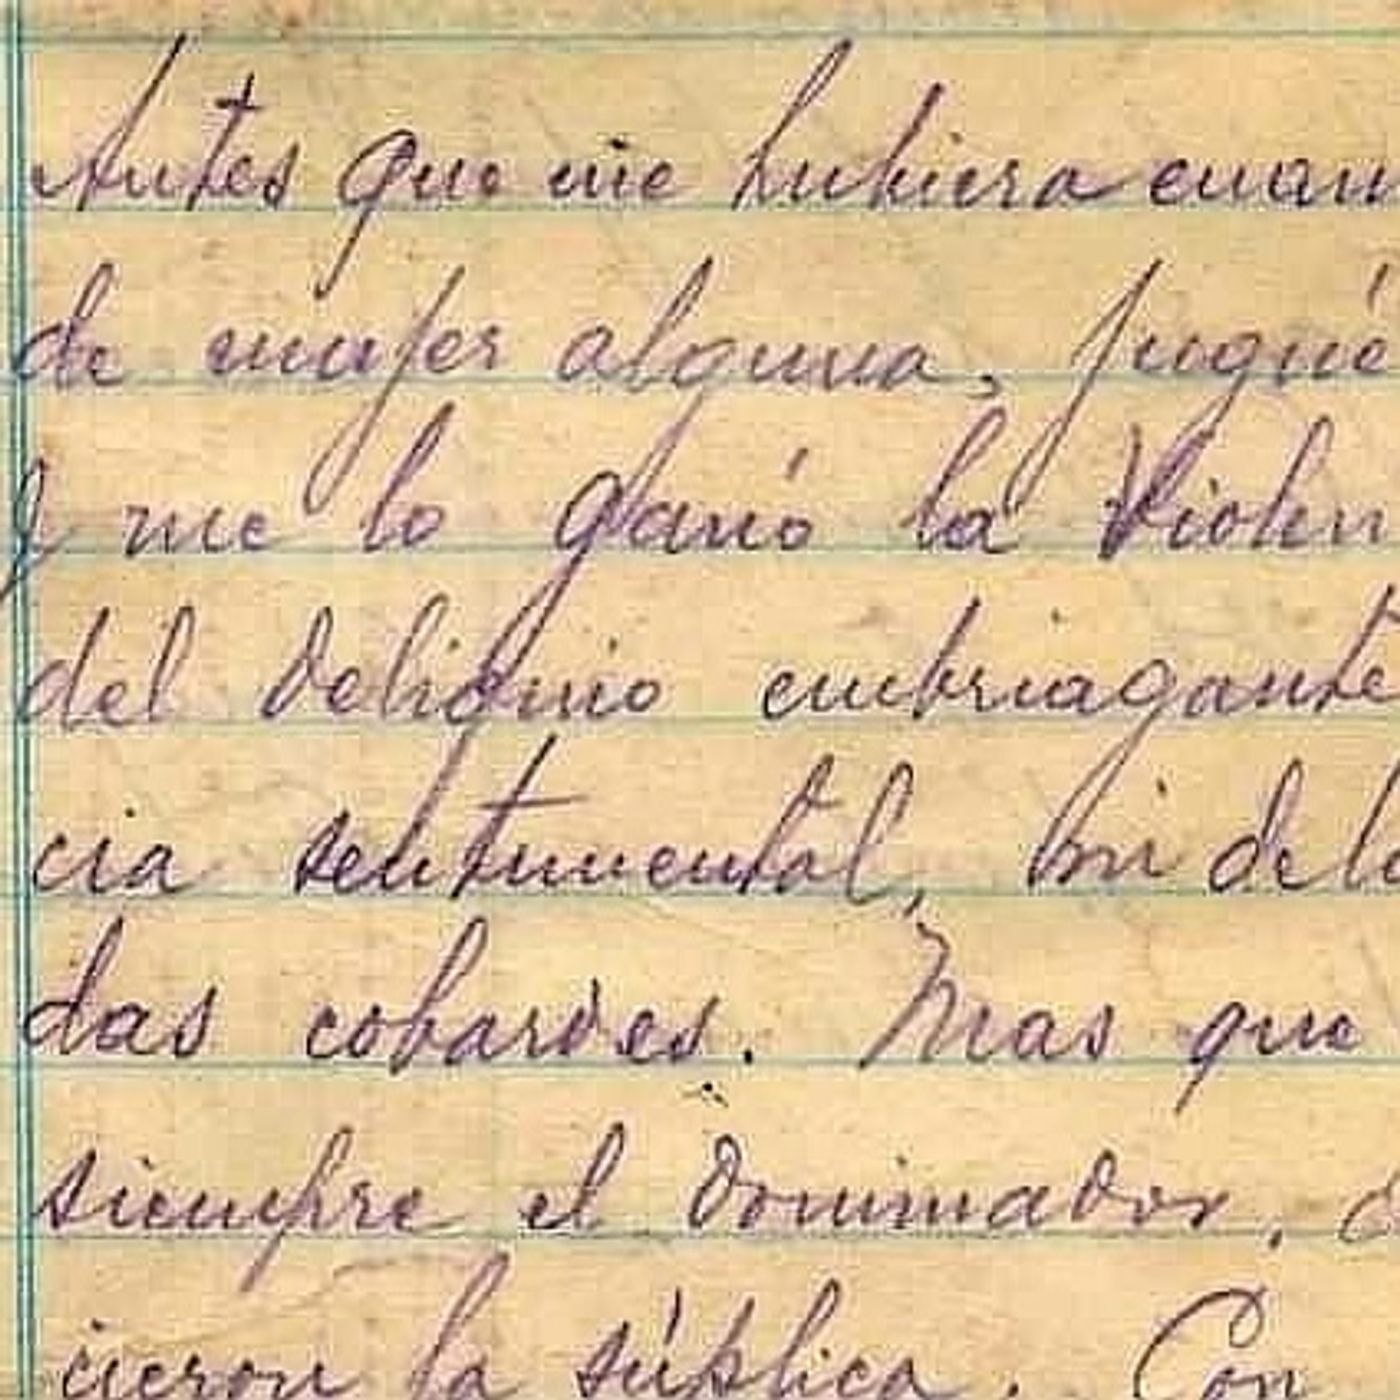 Antes que me hubiera enam
de mujer alguna, jugué
y me lo ganó la Violen
del deliquio embriagante
cia sentimental, ni de lo
das cobardes. Mas que
siempre el dominador. 
cieron la súplica. Con